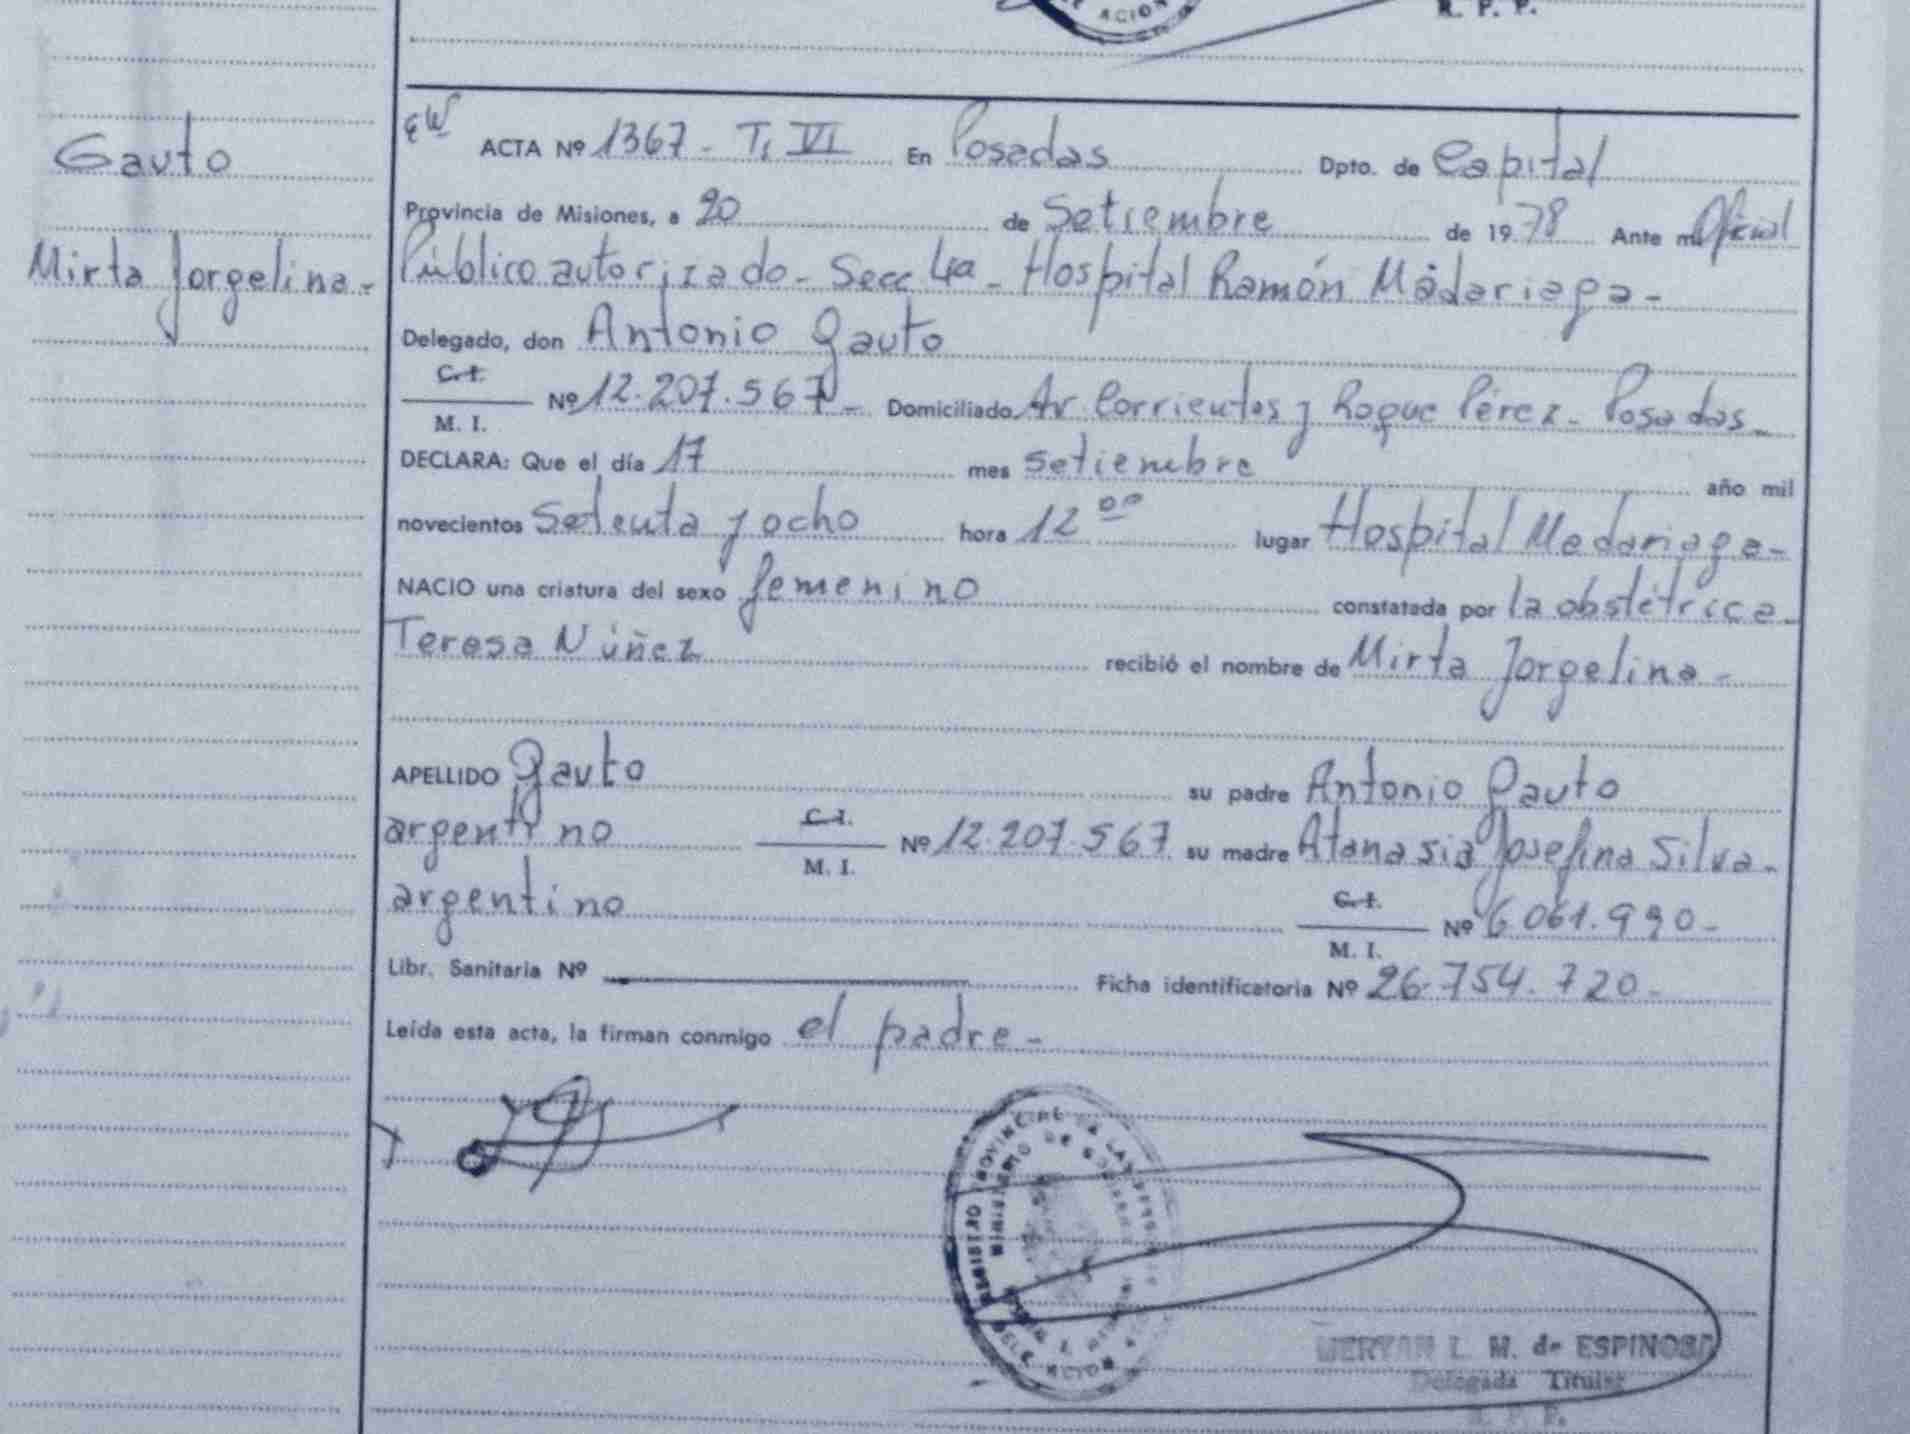 R. P. P.
ACION
Gauto
Mirta Jorgelina-
ACTA Nº 1367 - T, VI En Posadas Dpto. de Capital
Provincia de Misiones, a 20 de Setiembre de 1978 Ante mi Oficial
Público autorizado - Secc 4a - Hospital Ramón Madariaga -
Delegado, don Antonio Gauto
C. I.
M. I.
Nº 12.207.567 - Domiciliado Av Corrientes y Roque Pérez - Posadas -
DECLARA: Que el día 17 mes setiembre año mil
novecientos setenta y ocho hora 12 00 lugar Hospital Madariaga -
NACIO una criatura del sexo femenino constatada por la obstétrica
Teresa Núñez recibió el nombre de Mirta Jorgelina -
APELLIDO Gauto su padre Antonio Gauto
argentino C. I. M. I. Nº 12.207.567 su madre Atanasia Josefina Silva -
argentino C. I. M. I. Nº 6.061.990 -
Libr. Sanitaria Nº Ficha identificatoria Nº 26.754.720 -
Leída esta acta, la firman conmigo el padre -
REGISTRO PROVINCIAL DE LAS PERSONAS
MINISTERIO DE GOBIERNO
DELEGACION
MERYAN L. M. de ESPINOSA
Delegada Titular
R. P. P.